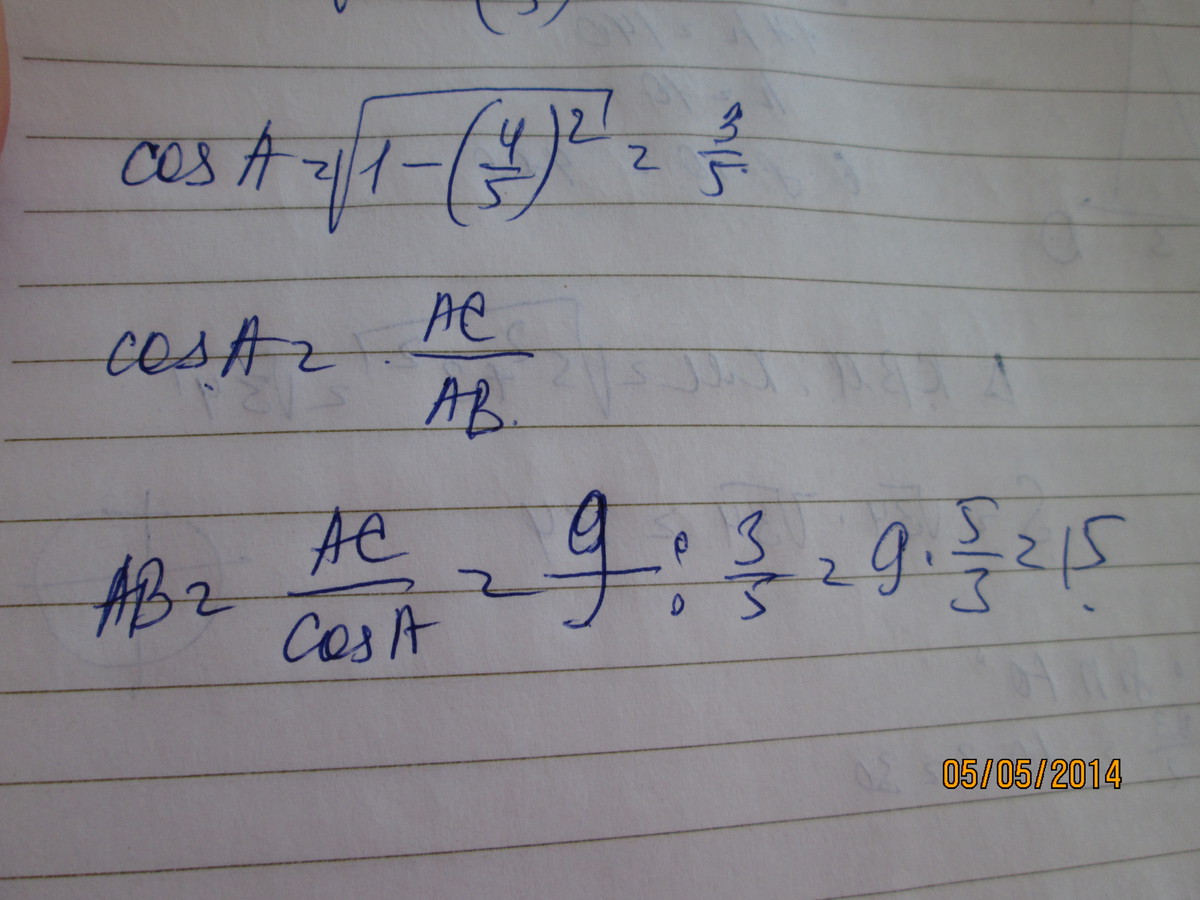 cos A = √(1 - (4/5)²) = 3/5
cos A = AC/AB
AB = AC/cos A = 9 : 3/5 = 9 · 5/3 = 15
05/05/2014